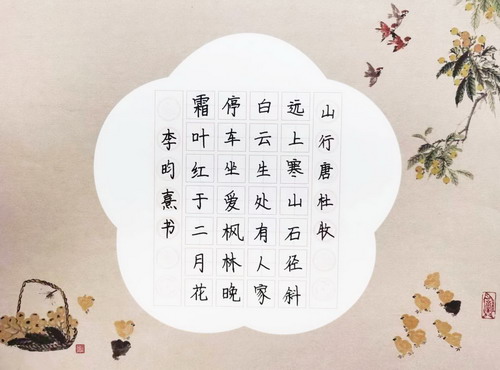 山行唐杜牧
远上寒山石径斜
白云生处有人家
停车坐爱枫林晚
霜叶红于二月花
李昀熹书